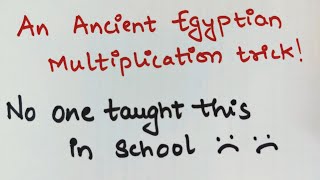 An Ancient Egyptian
Multiplication trick!
No one taught this
in school ☹ ☹